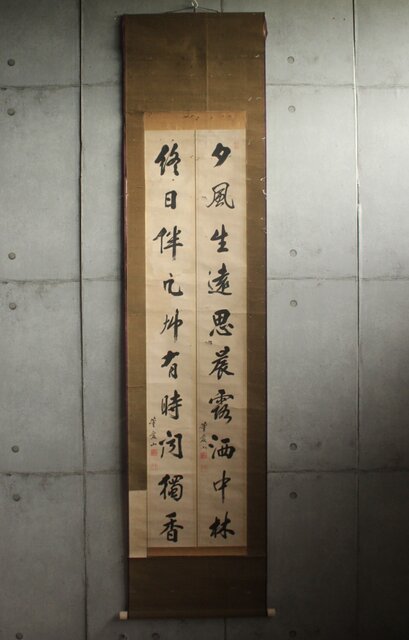 夕風生遠思晨露洒中林
終日伴凡艸有時聞獨香